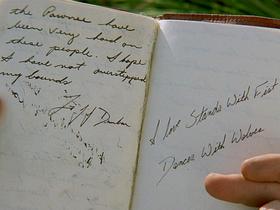 the Pawnee have
been very hard on
these people. I hope
I have not overstepped
my bounds
Lt. J Dunbar
I love Stands With Fist
Dances With Wolves